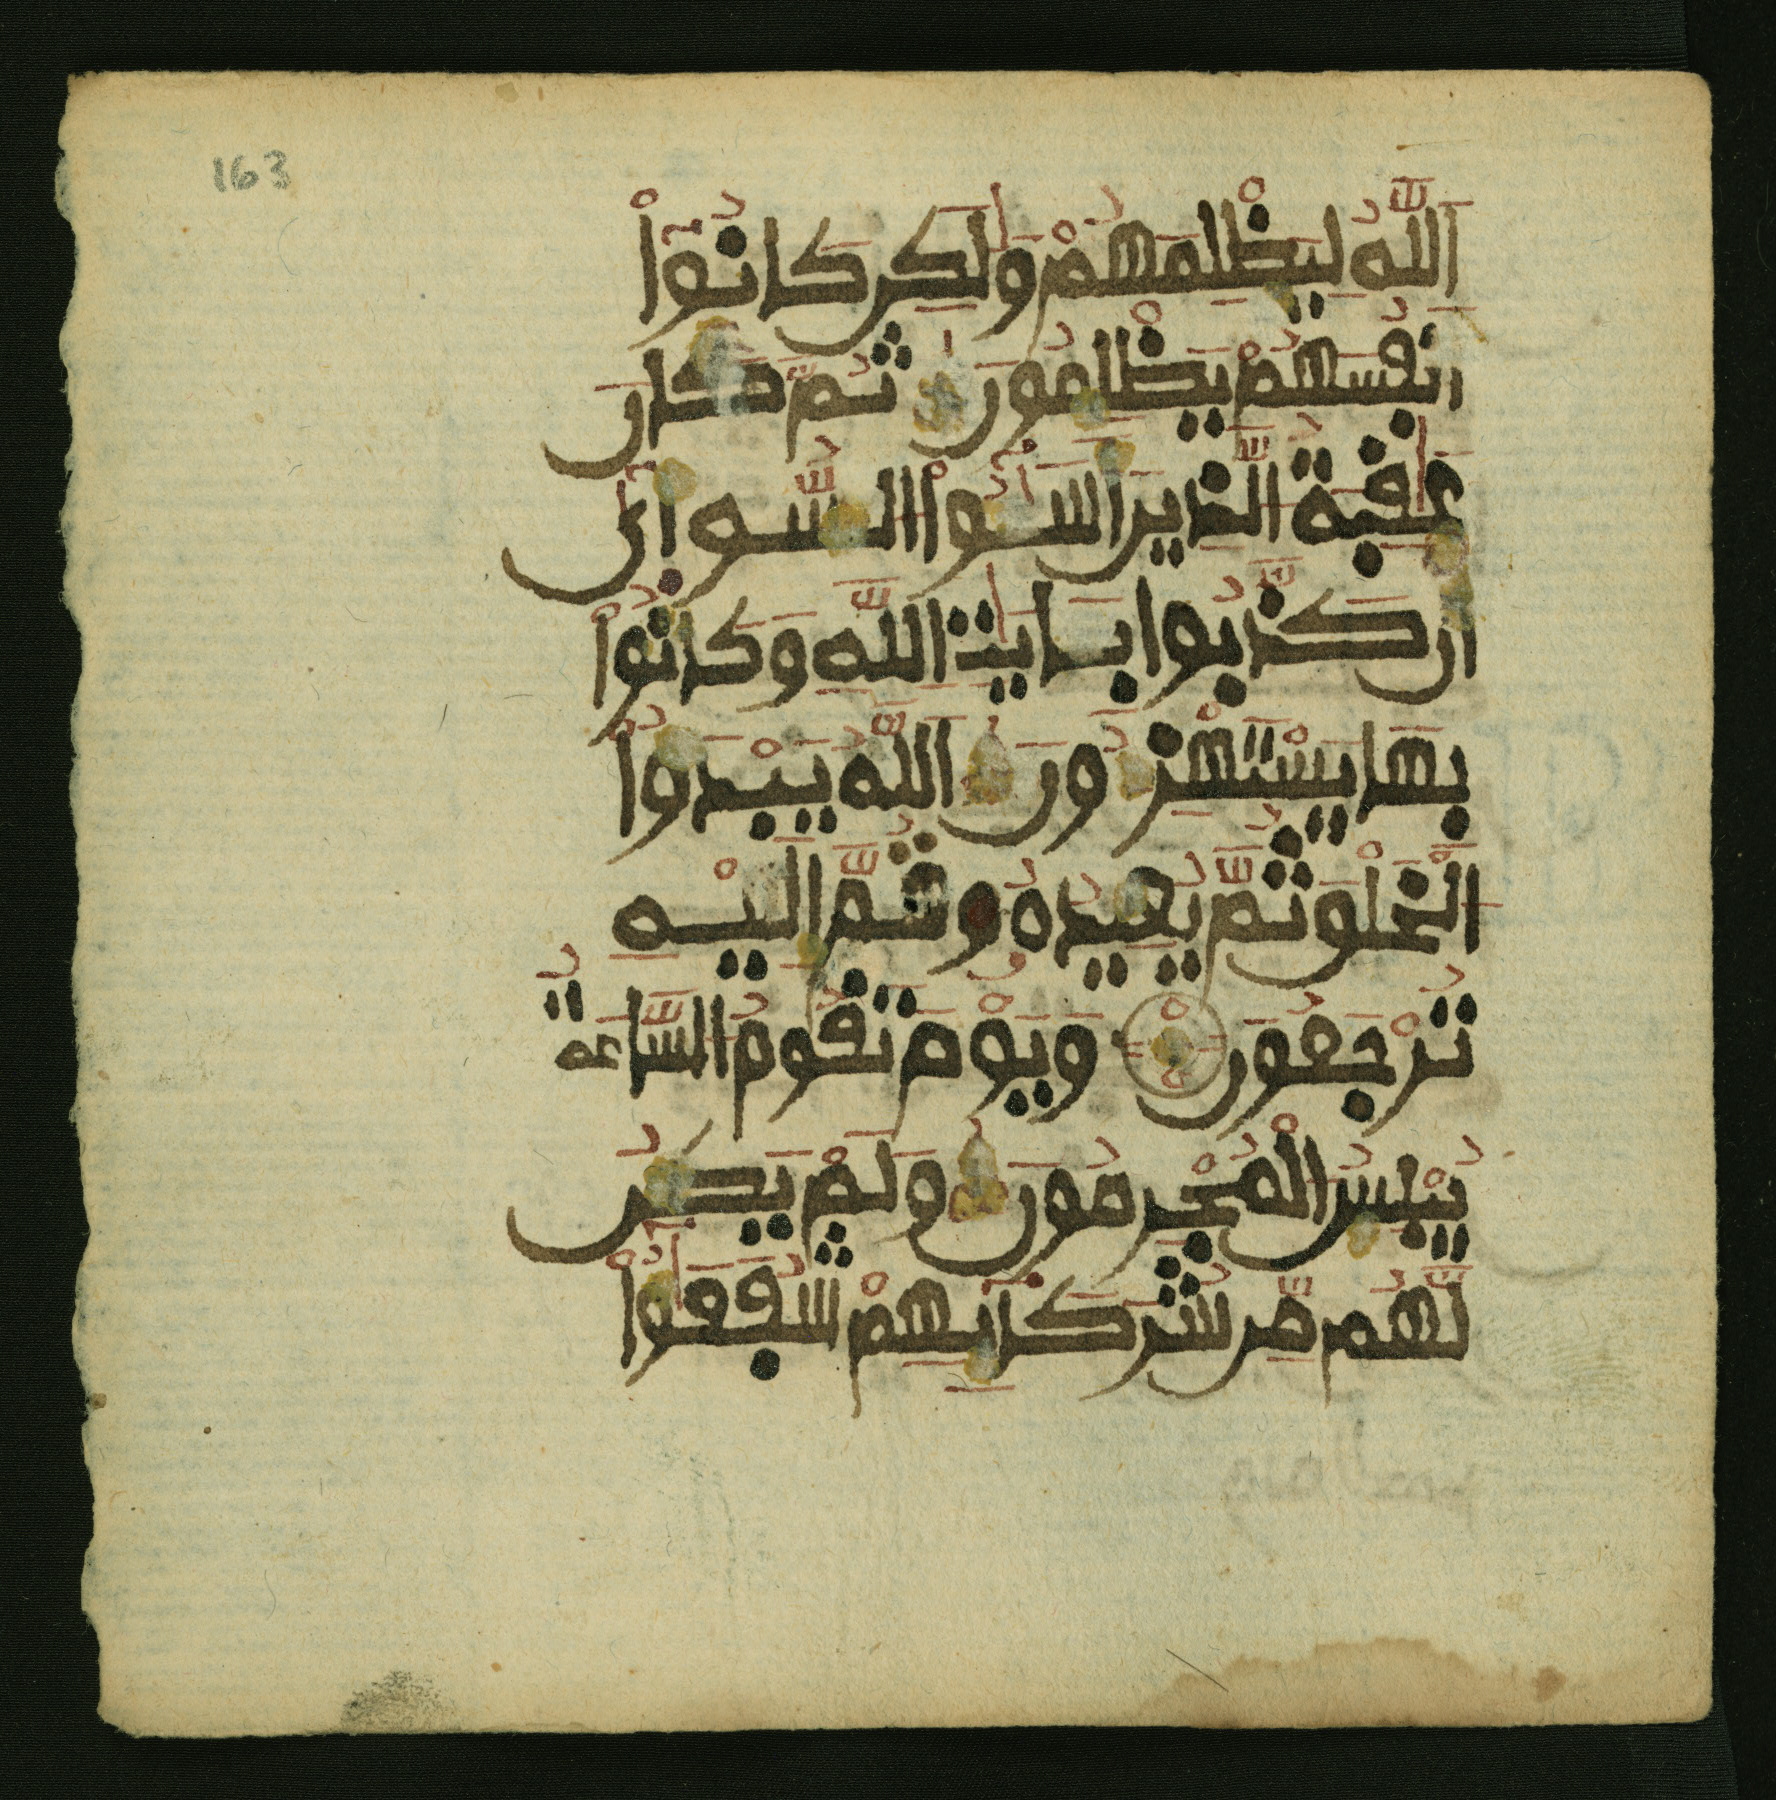 163
اللَّهُ لِيَظْلِمَهُمْ وَلَٰكِن كَانُوٓاْ
أَنفُسَهُمْ يَظْلِمُونَ ثُمَّ كَانَ
عَٰقِبَةُ الَّذِينَ أَسَٰٓـُٔواْ السُّوٓأَىٰٓ
أَن كَذَّبُواْ بِـَٔايَٰتِ اللَّهِ وَكَانُواْ
بِهَا يَسْتَهْزِءُونَ اللَّهُ يَبْدَؤُاْ
الْخَلْقَ ثُمَّ يُعِيدُهُۥ ثُمَّ إِلَيْهِ
تُرْجَعُونَ وَيَوْمَ تَقُومُ السَّاعَةُ
يُبْلِسُ الْمُجْرِمُونَ وَلَمْ يَكُن
لَّهُم مِّن شُرَكَآئِهِمْ شُفَعَٰٓؤُاْ